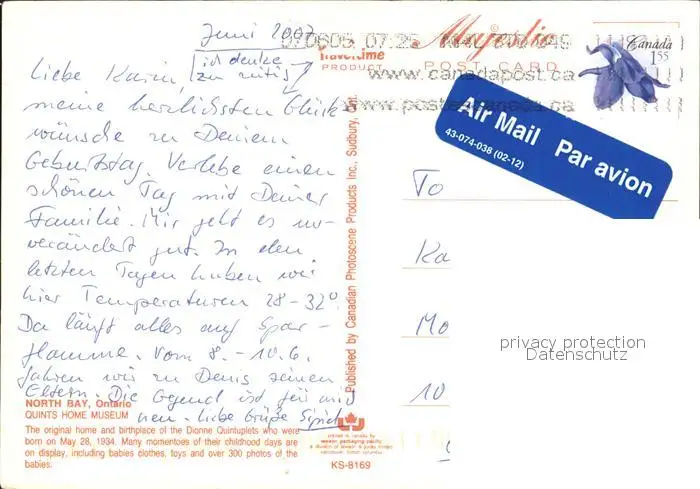 Juni 2007
070605 07:25
Liebe Karin! ich denke
zu zeitig
meine herzlichsten Glück-
wünsche zu Deinem
Geburtstag. Verlebe einen
schönen Tag mit Deiner
Familie. Mir geht es un-
verändert gut. In den
letzten Tagen haben wir
hier Temperaturen 28-32°.
Da läuft alles auf Spar-
flamme. Vom 8. - 10.6.
fahren wir zu Denis seinen
Eltern. Die Gegend ist für mich
neu. Liebe Grüße
NORTH BAY, Ontario
QUINTS HOME MUSEUM
The original home and birthplace of the Dionne Quintuplets who were
born on May 28, 1934. Many momentoes of their childhood days are
on display, including babies clothes, toys and over 300 photos of the
babies.
Traveltime
PRODUCT
Majestic
POST CARD
www.canadapost.ca
www.postescanada.ca
Canada
1.55
Air Mail Par avion
43-074-038 (02-12)
Published by Canadian Photoscene Products Inc., Sudbury, Ont.
To
Ka
Mo
10
privacy protection
Datenschutz
printed in canada by
KS-8169